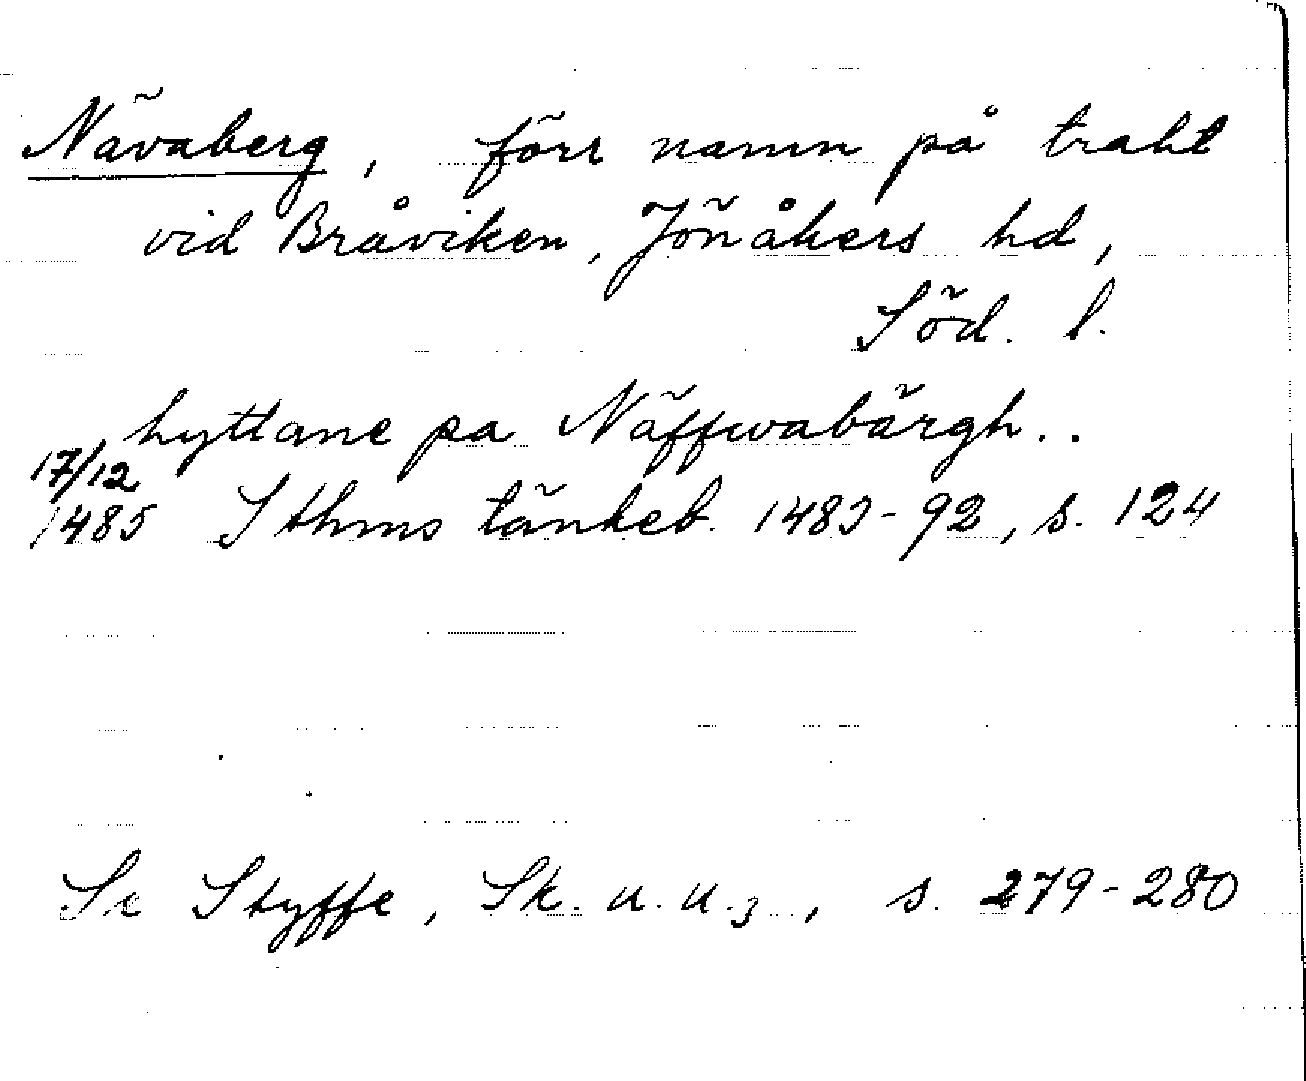 Nävaberg, förr namn på trakt
vid Bråviken, Jönåkers hd,
Söd. l.
hyttane pa Näffwabärgh..
17/12
1485 Sthms tänkeb. 1483-92, s. 124
Se Styffe, Sk. u. u.3, s. 279-280